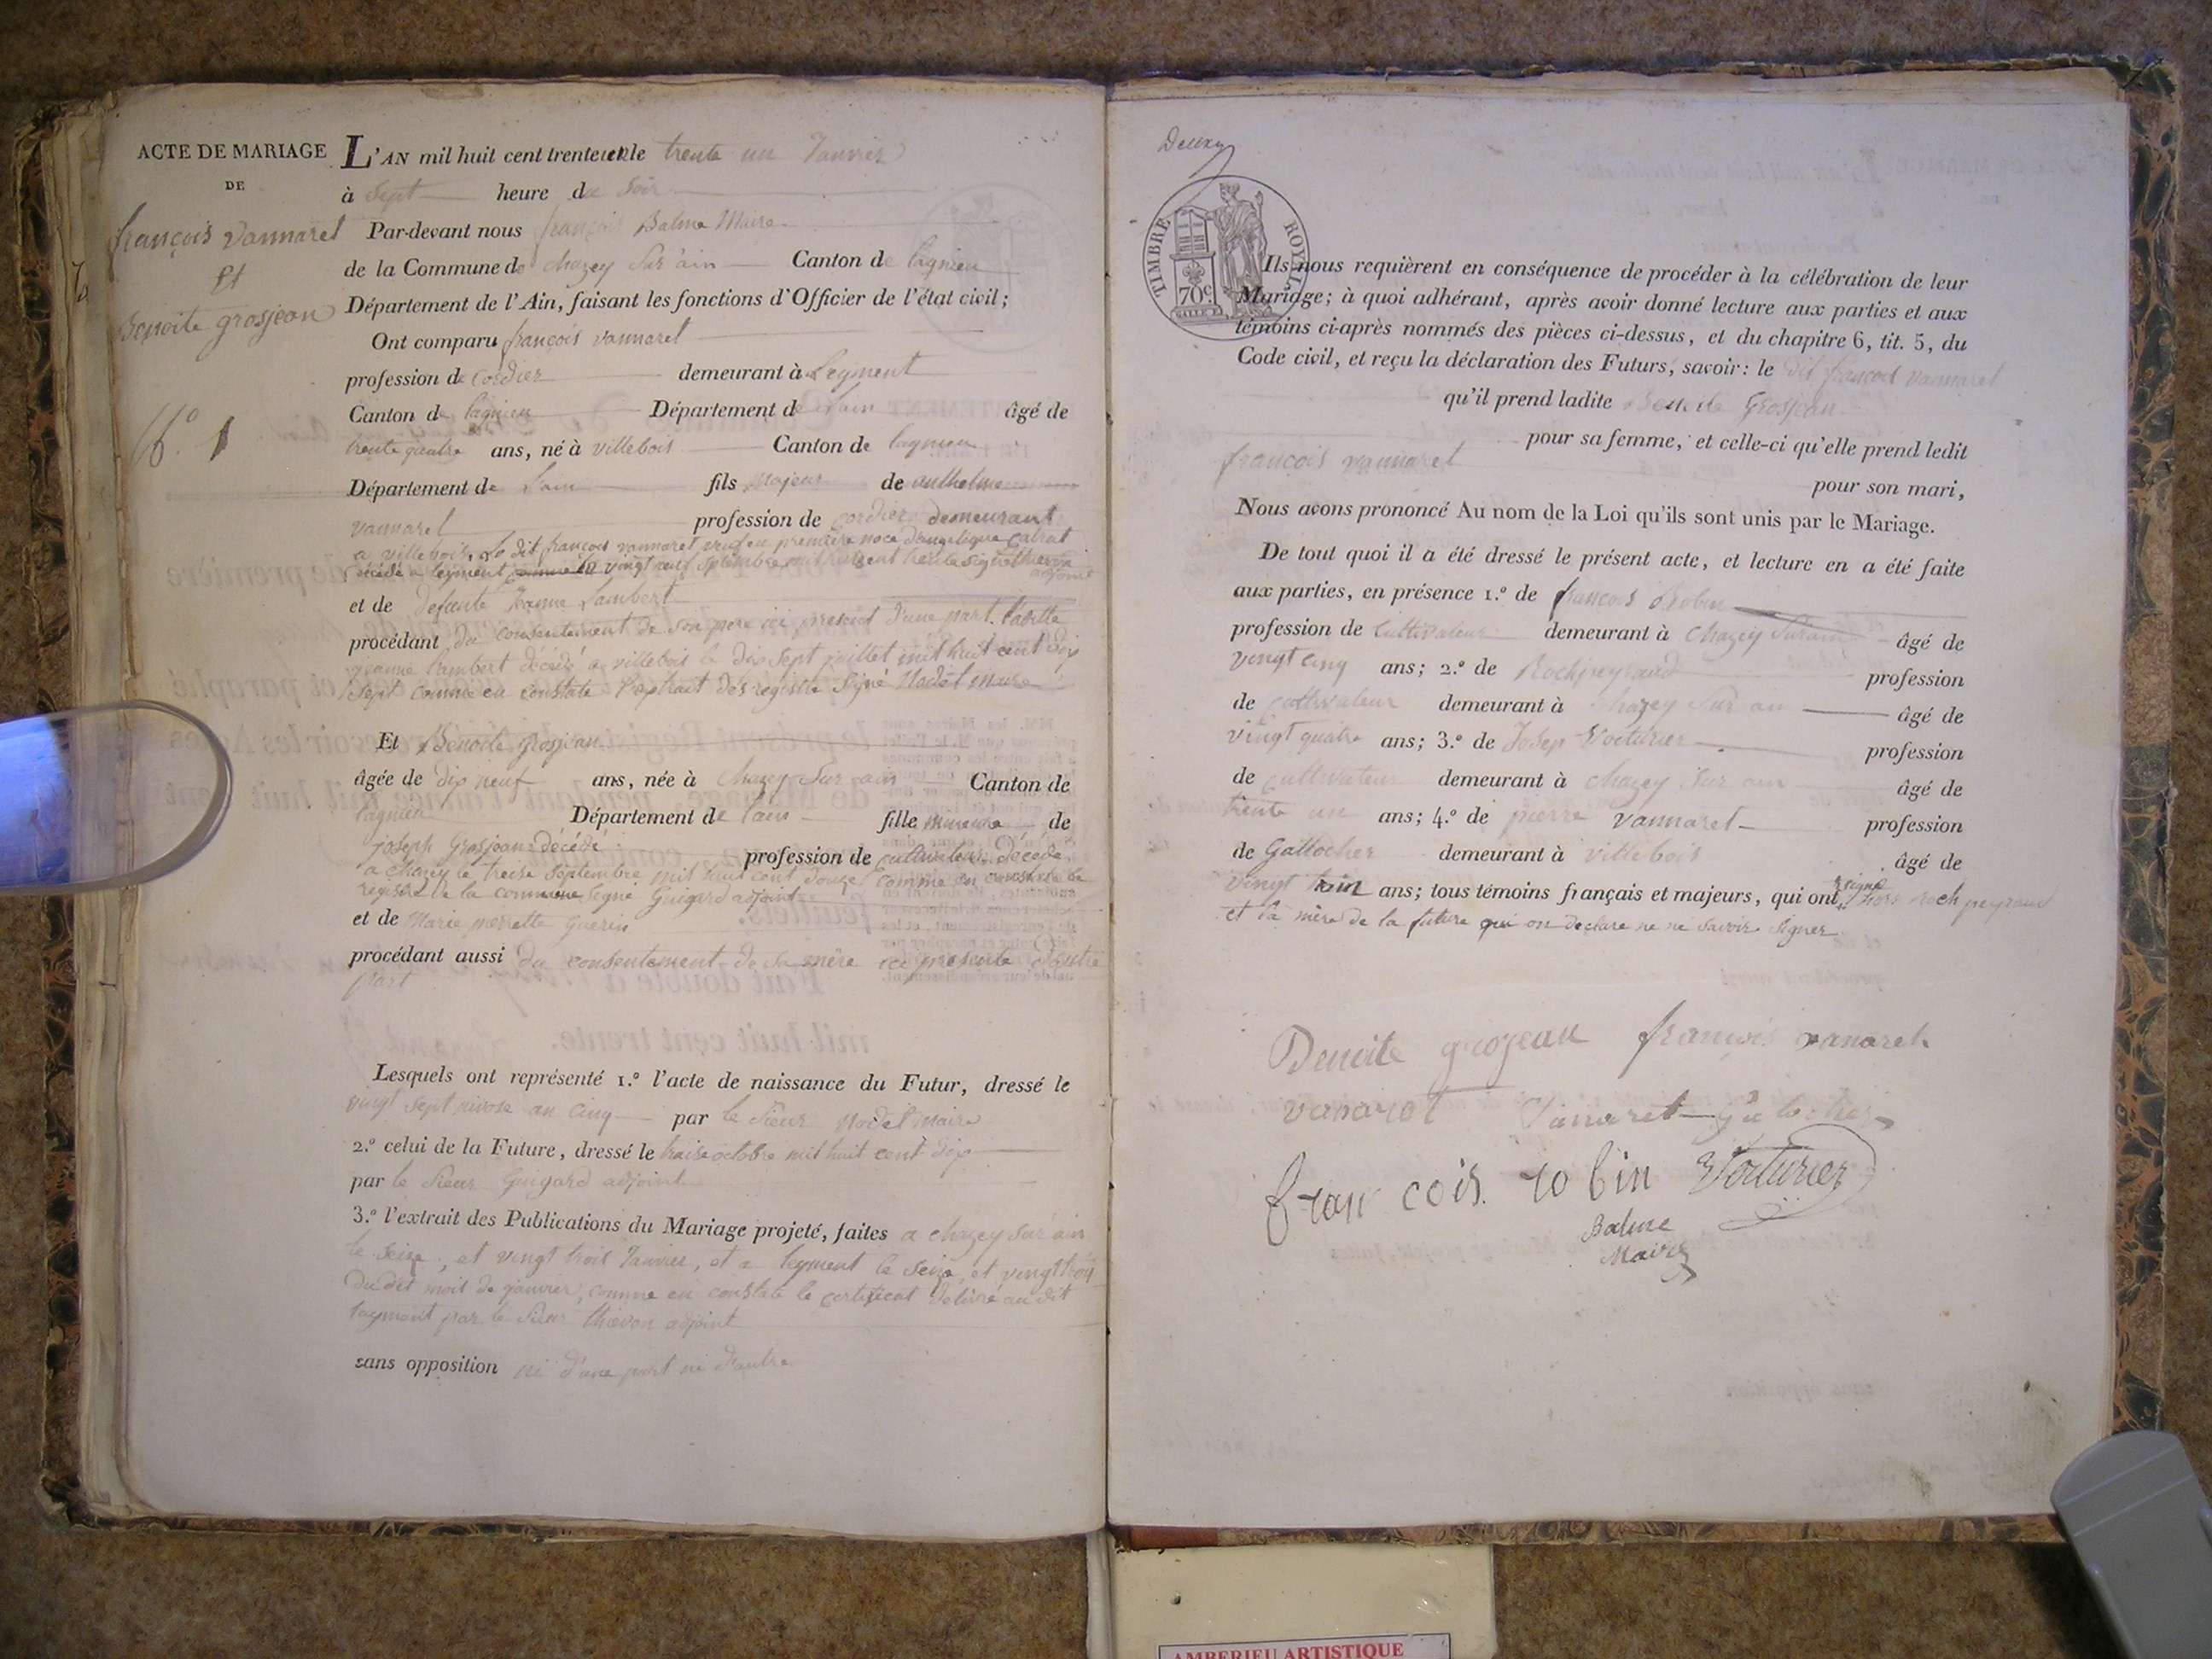 ACTE DE MARIAGE
DE
françois Vannaret
et
Benoite grosjean
N.º 1
L'AN mil huit cent trente un le trente un Janvier
à Sept heure du Soir
Par-devant nous françois Balme Maire
de la Commune de chazey Sur ain Canton de lagnieu
Département de l'Ain, faisant les fonctions d'Officier de l'état civil;
Ont comparu françois vannaret
profession de Cordier demeurant à Leyment
Canton de lagnieu Département de Lain âgé de
trente quatre ans, né à villebois Canton de lagnieu
Département de Lain fils majeur de anthelme
vannaret profession de cordier demeurant
a villebois, Le dit françois vannaret veuf en premiere noce dangelique
décédé a leyment vingt neuf Septembre mil huit cent trente signé thievon
adjoint
et de defunte Jeanne Lambert
procédant du consentement de son pere ici present d'une part. Ladite
jeanne lambert décédé a villebois le dix Sept juillet mil huit cent dix
Sept comme en constate l'extrait des registre Signé Nodet maire
Et Benoite Grosjean
âgée de dix neuf ans, née à Chazey Sur ain Canton de
lagnieu Département de Lain fille mineure de
joseph Grosjean décédé profession de cultivateur décédé
a chazey le treise Septembre mil huit cent douze comme en constate le
registre de la commune Signé Guigard adjoint
et de Marie pierrette Guerin
procédant aussi du consentement de sa mère ici presente d'autre
part
Lesquels ont représenté 1.º l'acte de naissance du Futur, dressé le
vingt Sept nivose an Cinq par le Sieur Nodet maire
2.º celui de la Future, dressé le traise octobre mil huit cent dix
par le Sieur Guigard adjoint
3.º l'extrait des Publications du Mariage projeté, faites a chazey Sur ain
le Seize, et vingt trois Janvier, et a leyment le Seize, et vingt trois
Du dit mois de janvier, comme en constate le certificat délivré au dit
laymant par le Sieur thievon adjoint
sans opposition ni d'une part ni d'autre
Deux
TIMBRE ROYAL
70 c.
Ils nous requièrent en conséquence de procéder à la célébration de leur
Mariage; à quoi adhérant, après avoir donné lecture aux parties et aux
témoins ci-après nommés des pièces ci-dessus, et du chapitre 6, tit. 5, du
Code civil, et reçu la déclaration des Futurs, savoir: le dit françois vannaret
qu'il prend ladite Benoite Grosjean
pour sa femme, et celle-ci qu'elle prend ledit
françois vannaret
pour son mari,
Nous avons prononcé Au nom de la Loi qu'ils sont unis par le Mariage.
De tout quoi il a été dressé le présent acte, et lecture en a été faite
aux parties, en présence 1.º de françois Robin
profession de Cultivateur demeurant à Chazey Sur ain âgé de
vingt cinq ans; 2.º de Roch peyraud profession
de cultivateur demeurant à Chazey Sur ain âgé de
vingt quatre ans; 3.º de Josep Voiturier profession
de cultivateur demeurant à chazey Sur ain âgé de
trente un ans; 4.º de pierre vannaret profession
de Gallocher demeurant à villebois âgé de
vingt ans; tous témoins français et majeurs, qui ont signé hors roch peyraud
et la mère de la future qui on declare ne ne savoir signer
Benoite grozean françois vanaret
vanarot Vanaret Galochier
fran cois robin Voiturier
Balme
Maire
AMBERIEU ARTISTIQUE